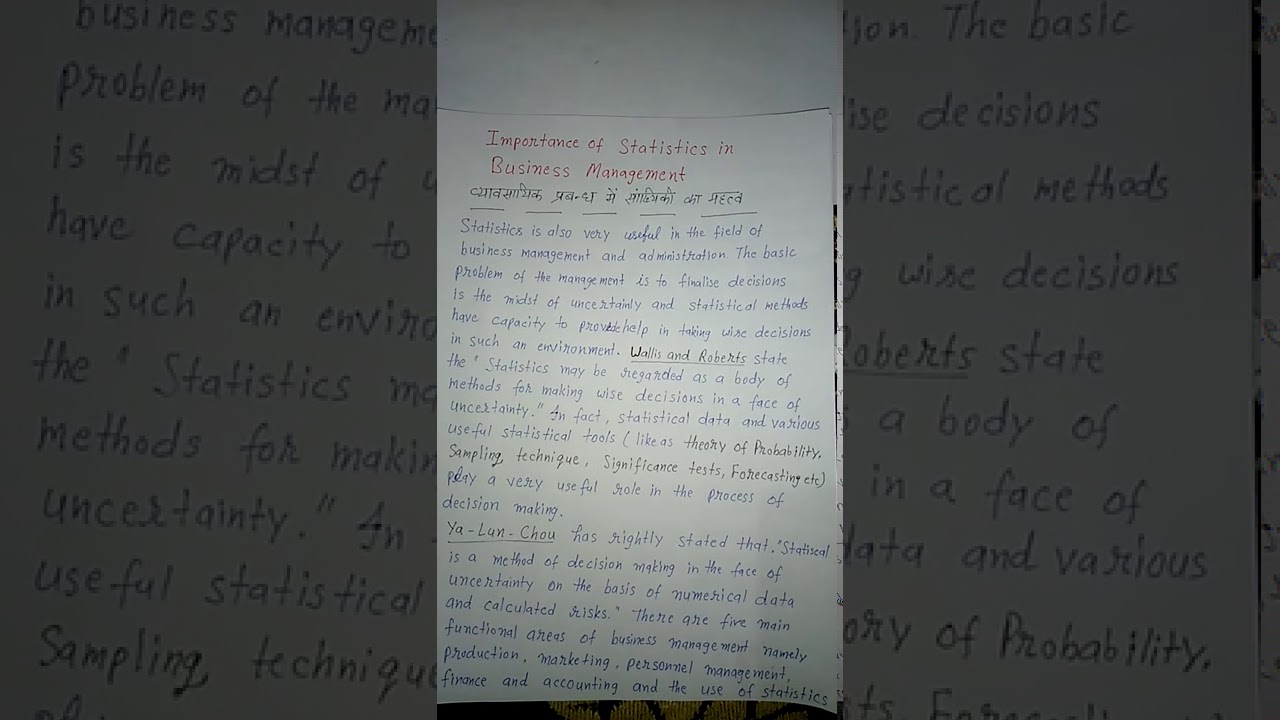 Importance of Statistics in
Business Management
व्यावसायिक प्रबन्ध में सांख्यिकी का महत्व
Statistics is also very useful in the field of
business management and administration. The basic
problem of the management is to finalise decisions
is the midst of uncertainly and statistical methods
have capacity to provide help in taking wise decisions
in such an environment. Wallis and Roberts state
the "Statistics may be regarded as a body of
methods for making wise decisions in a face of
uncertainty." In fact, statistical data and various
useful statistical tools (like as theory of Probability,
Sampling technique, Significance tests, Forecasting etc)
play a very useful role in the process of
decision making.
Ya-Lun-Chou has rightly stated that, "Statiscal
is a method of decision making in the face of
uncertainty on the basis of numerical data
and calculated risks." There are five main
functional areas of business management namely
production, marketing, personnel management,
finance and accounting and the use of statistics